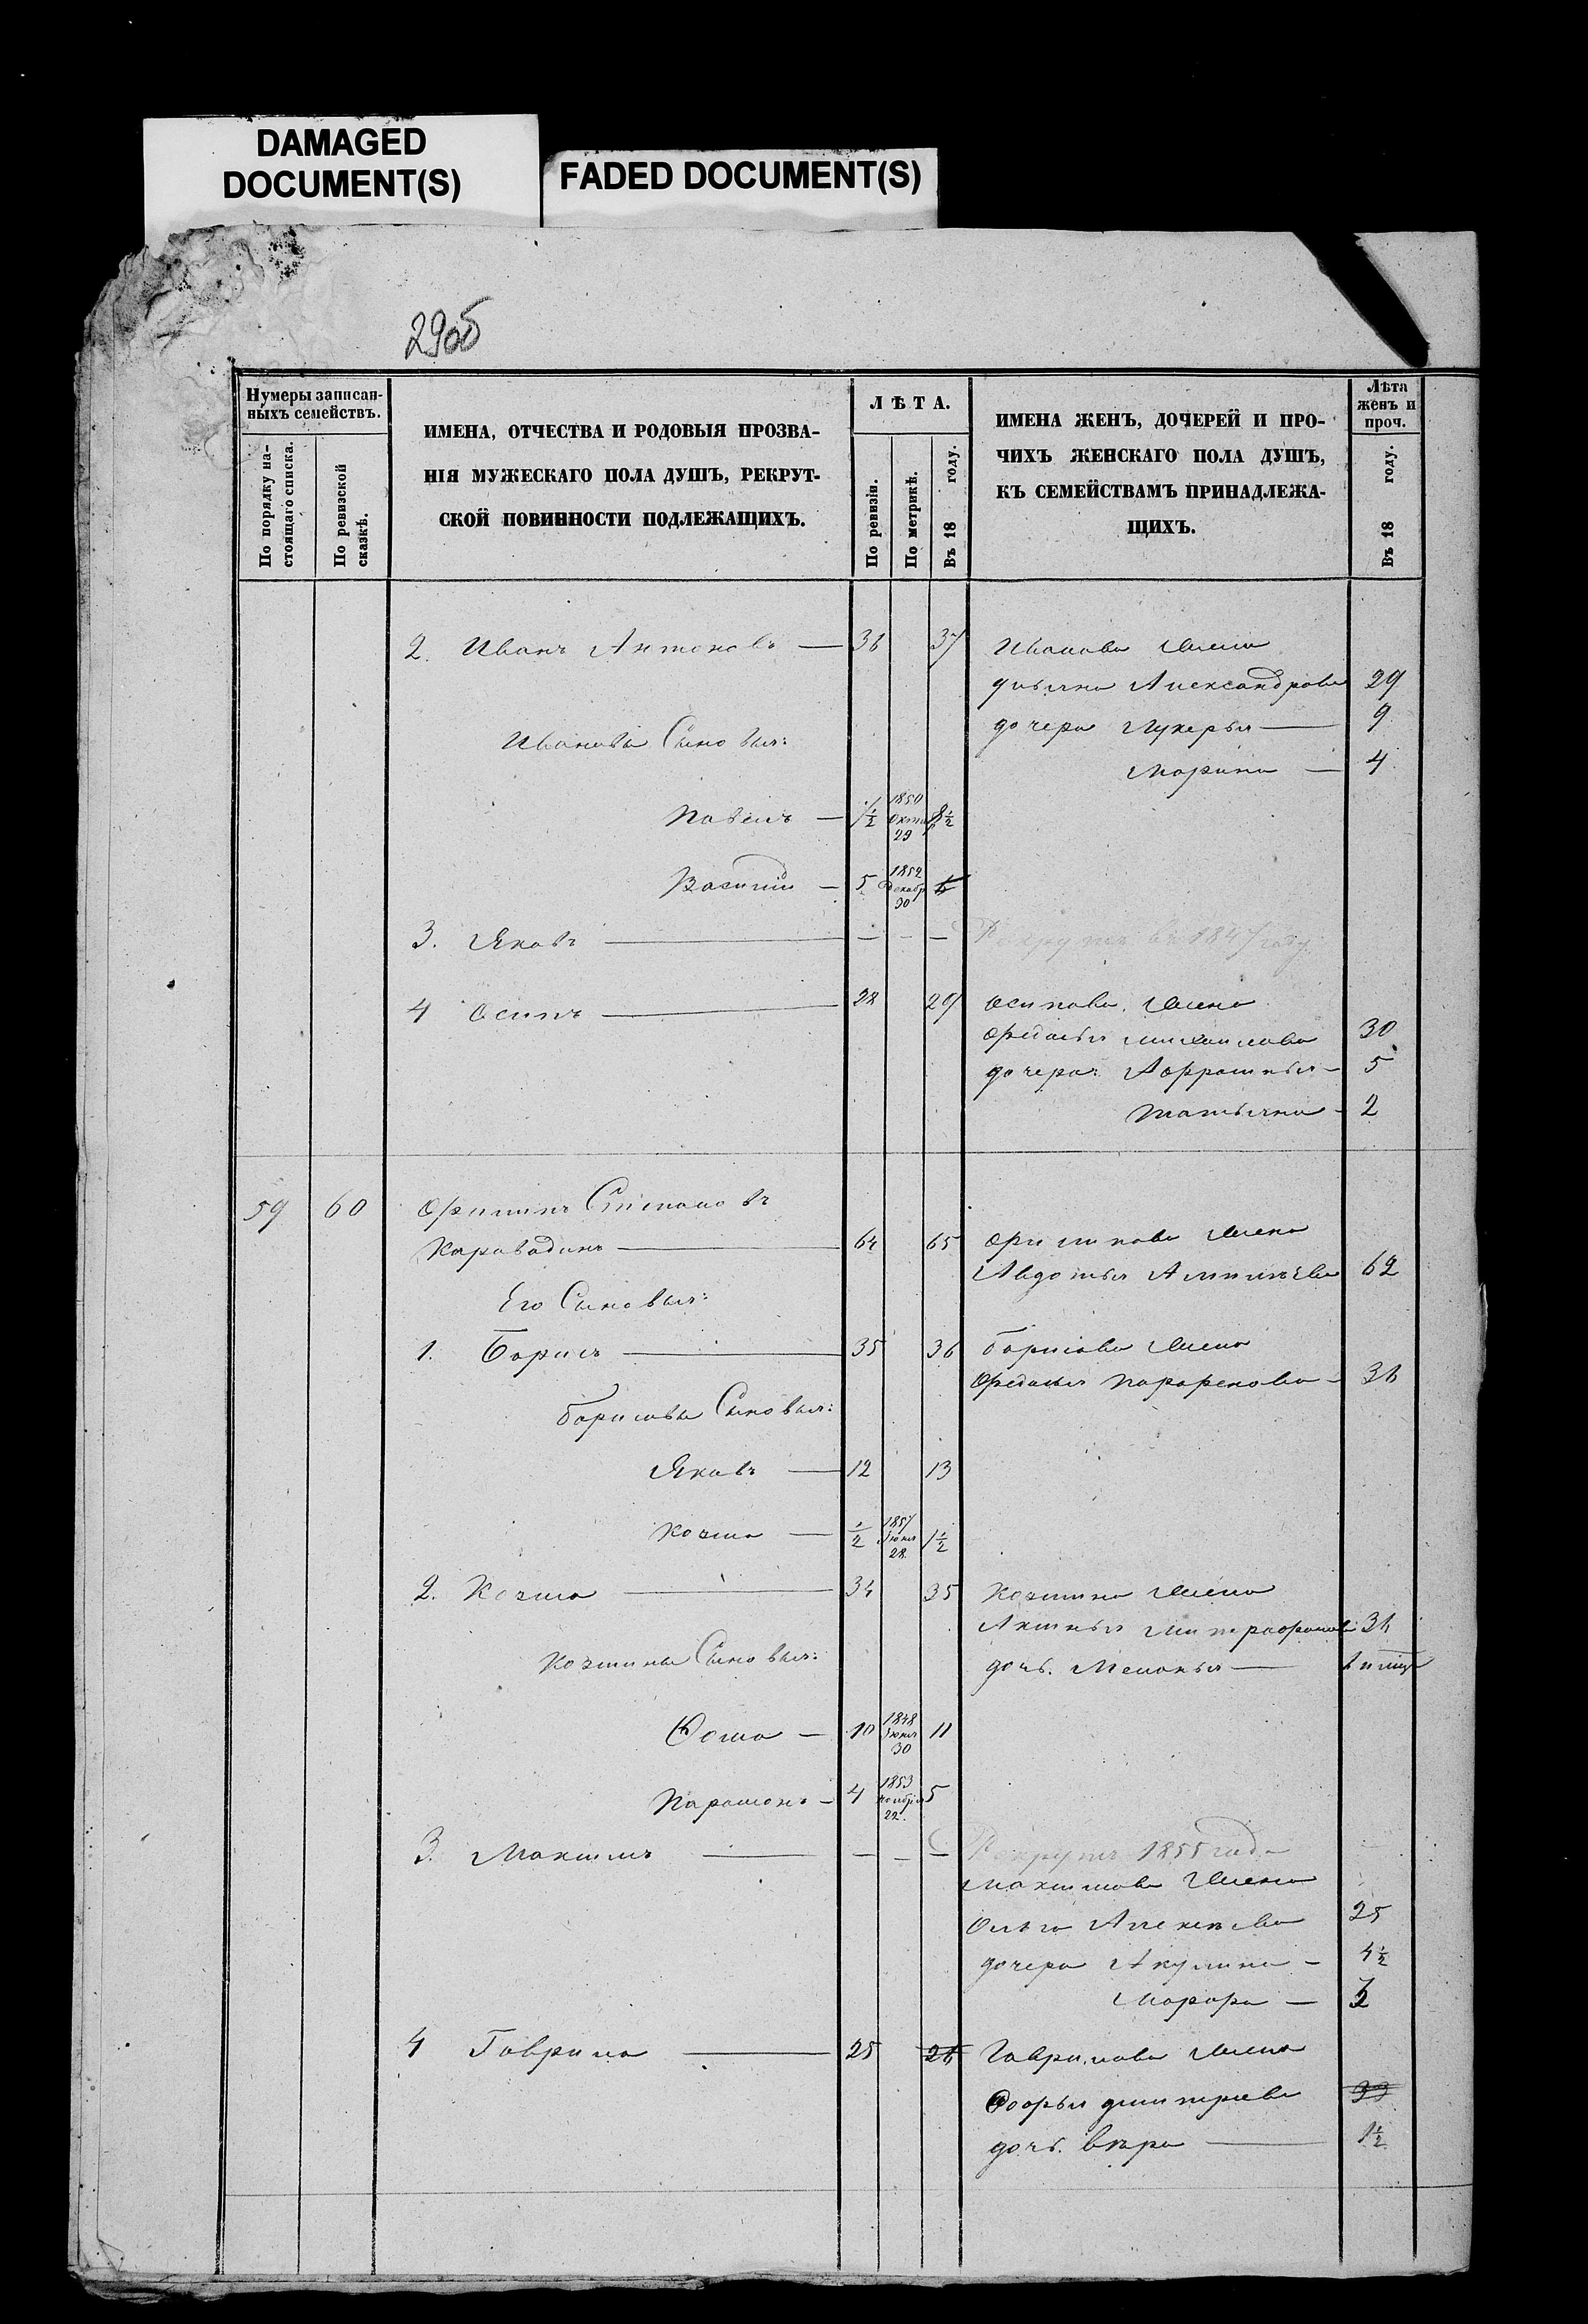 DAMAGED
DOCUMENT(S)
FADED DOCUMENT(S)
29об
Нумеры записан-
ныхъ семействъ.
По порядку на-
стоящаго списка.
По ревизской
сказкѣ.
ИМЕНА, ОТЧЕСТВА И РОДОВЫЯ ПРОЗВА-
НІЯ МУЖЕСКАГО ПОЛА ДУШЪ, РЕКРУТ-
СКОЙ ПОВИННОСТИ ПОДЛЕЖАЩИХЪ.
ЛѢТА.
По ревизіи.
По метрикѣ.
Въ 18 году.
ИМЕНА ЖЕНЪ, ДОЧЕРЕЙ И ПРО-
ЧИХЪ ЖЕНСКАГО ПОЛА ДУШЪ,
КЪ СЕМЕЙСТВАМЪ ПРИНАДЛЕЖА-
ЩИХЪ.
Лѣта
женъ и
проч.
Въ 18 году.
2. Иванъ Антоновъ — 36 37 Иванова жена
Александрова 29
дочери Лукерья — 9
Ивановы Сыновья:
Марина — 4
Павелъ — 7½ 1850 Октяб 29 8½
Василій — 5 1852 Декабр 30 6
3. Яковъ — — — — Рекрутъ въ 1847 году
4 Осипъ — 28 29 Осипова жена
Федосья Михаилова 30
дочери: Аффросинья — 5
Татьяна - 2
59 60 Филипъ Степановъ
Каравадинъ — 64 65 Филипова жена
Авдотья 62
Его Сыновья:
1. Борисъ — 35 36 Борисова жена
Федосья Парфенова — 36
Борисовы Сыновья:
Яковъ — 12 13
Козма — ½ 1857 28 1½
2. Козма — 34 35 Козмина жена
Аксинья Митрофанова 36
Козмины Сыновья: дочь. Меланья —
Фома — 10 1848 30 11
Парамонъ - 4 1853 Ноября 22. 5
3. Максимъ — — — — Рекрутъ 1855 года
Максимова жена
Ольга Алексѣева 25
дочери Акулина — 4½
Марфа —
4 Гаврила — 25 26 Гаврилова жена
Дмитріева 33
дочь. Вѣра — 1½